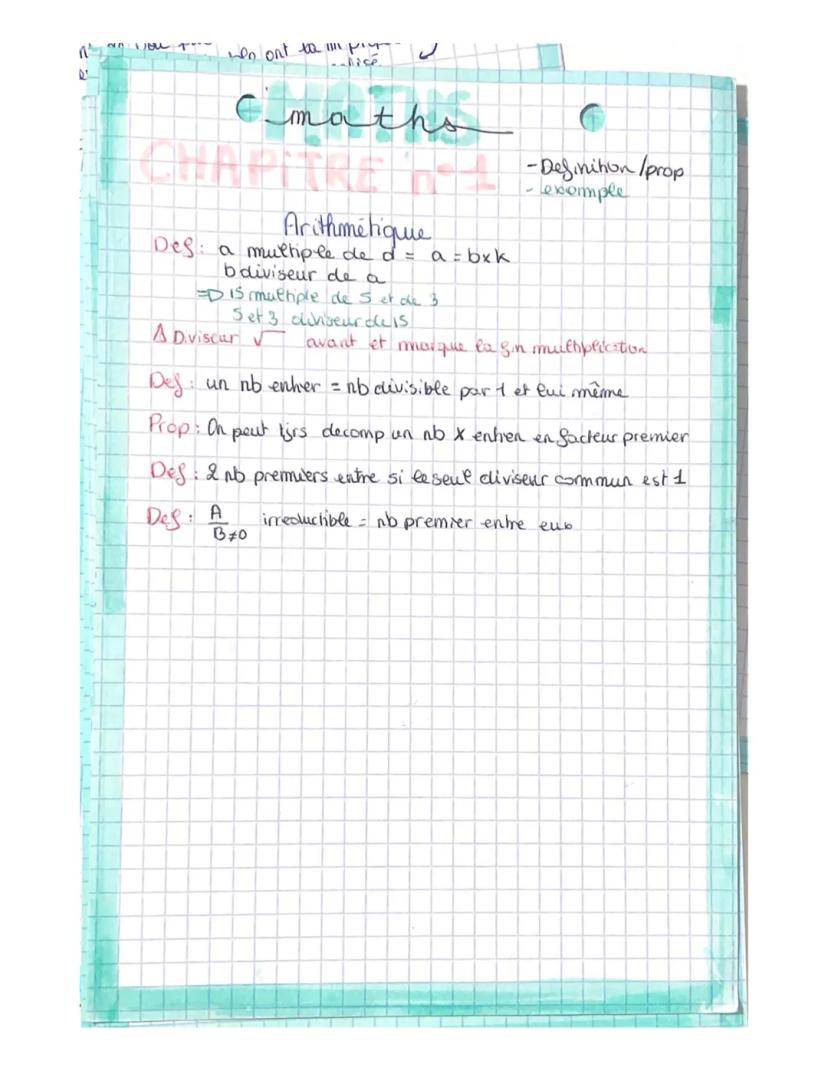 wen ont
maths
MATHS
CHAPiTRE n°1
- Definition /prop
- exemple
Arithmétique
Def : a multiple de d = a = b x k
b diviseur de a
=D 15 multiple de 5 et de 3
5 et 3 diviseur de 15
Δ Diviseur √ avant et marque la fin multiplication
Def : un nb entier = nb divisible par 1 et lui même
Prop : On peut tjrs decomp un nb X entier en facteur premier
Def : 2 nb premiers entre si le seul diviseur commun est 1
Def : A
B≠0 irreductible = nb premier entre eux